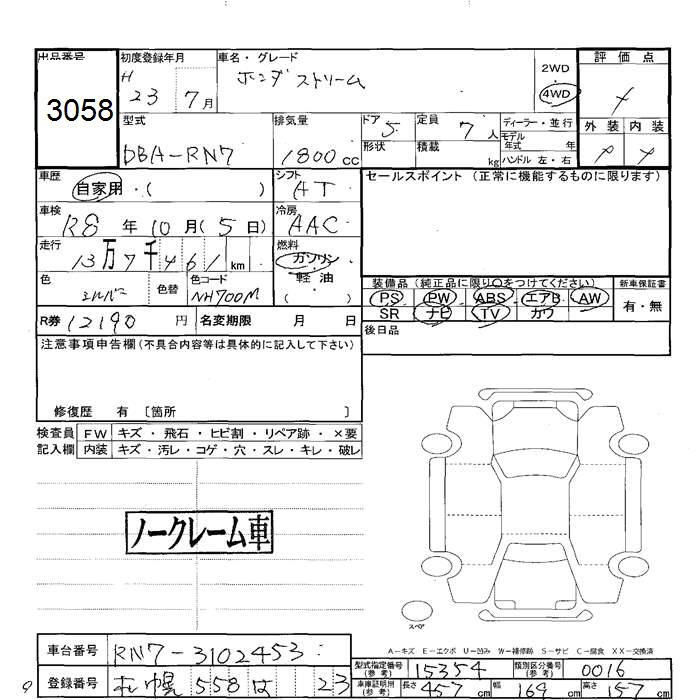 出品番号 初度登録年月 車名・グレード 2WD 評価点
H ホンダ ストリーム 4WD
3058 23 7月
型式 排気量 ドア 定員 ディーラー・並行 外装 内装
DBA-RN7 1800cc 5 7人 モデル年式 年
形状 積載 kg ハンドル 左・右
車歴 自家用・( ) シフト AT セールスポイント (正常に機能するものに限ります)
車検 R8年10月(5日) 冷房 AAC
走行 13万7千461km 燃料 ガソリン
軽油
・( )
色 シルバー 色替 色コード NH700M 装備品 (純正品に限り○をつけてください) 新車保証書
PS PW ABS エアB AW 有・無
R券 12190円 名変期限 月 日 SR ナビ TV カワ
後日品
注意事項申告欄(不具合内容等は具体的に記入して下さい)
修復歴 有 〔箇所 〕
検査員 FW キズ・飛石・ヒビ割・リペア跡・×要
記入欄 内装 キズ・汚レ・コゲ・穴・スレ・キレ・破レ
ノークレーム車
スペア
A-キズ E-エクボ U-凹み W-補修跡 S-サビ C-腐食 XX-交換済
車台番号 RN7-3102453 型式指定番号(参考) 15354 類別区分番号(参考) 0016
登録番号 札幌 558 は 23 車庫証明用(参考) 長さ 457cm 幅 169cm 高さ 157cm